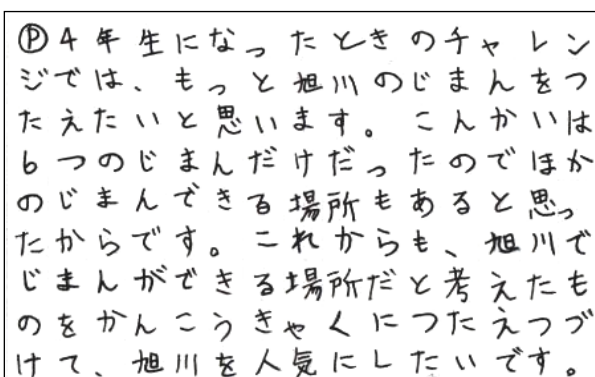 Ⓟ4年生になったときのチャレン
ジでは、もっと旭川のじまんをつ
たえたいと思います。こんかいは
6つのじまんだけだったのでほか
のじまんできる場所もあると思っ
たからです。これからも、旭川で
じまんができる場所だと考えたも
のをかんこうきゃくにつたえつづ
けて、旭川を人気にしたいです。